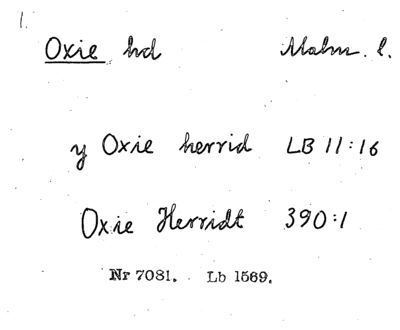 1.
Oxie hd Malm. l.
y Oxie herrid LB 11:16
Oxie Herridt 390:1
Nr 7081. Lb 1569.